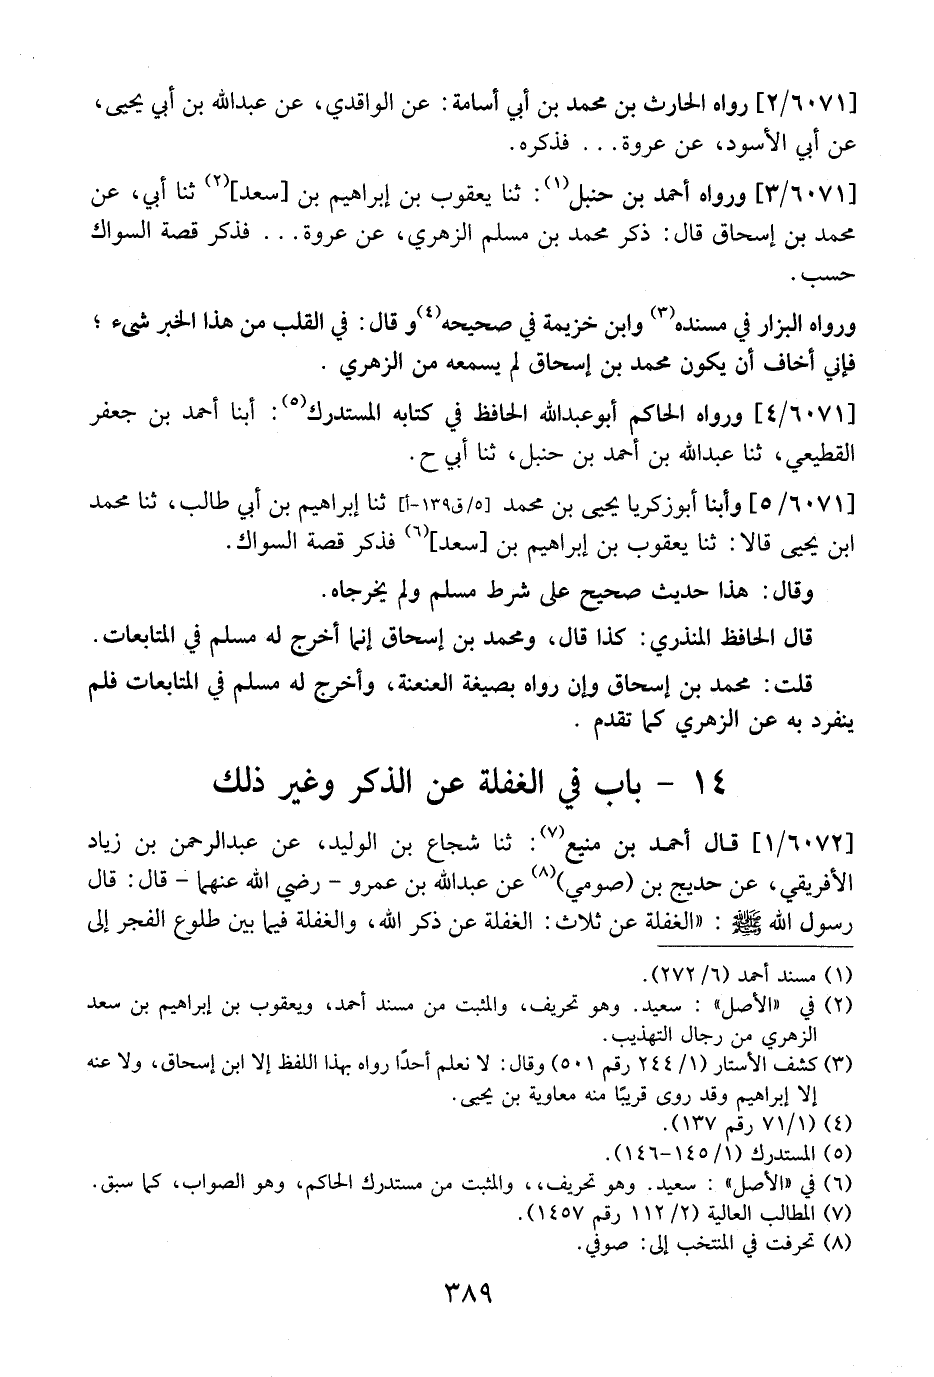 [٢/٦٠٧١] رواه الحارث بن محمد بن أبي أسامة: عن الواقدي، عن عبدالله بن أبي يحيى،
عن أبي الأسود، عن عروة... فذكره.
[٣/٦٠٧١] ورواه أحمد بن حنبل(١): ثنا يعقوب بن إبراهيم بن [سعد](٢) ثنا أبي، عن
محمد بن إسحاق قال: ذكر محمد بن مسلم الزهري، عن عروة... فذكر قصة السواك
حسب.
ورواه البزار في مسنده(٣) وابن خزيمة في صحيحه(٤)و قال: في القلب من هذا الخبر شىء ؛
فإني أخاف أن يكون محمد بن إسحاق لم يسمعه من الزهري .
[٤/٦٠٧١] ورواه الحاكم أبوعبدالله الحافظ في كتابه المستدرك(٥): أبنا أحمد بن جعفر
القطيعي، ثنا عبدالله بن أحمد بن حنبل، ثنا أبي ح.
[٥/٦٠٧١] وأبنا أبوزكريا يحيى بن محمد [٥/ق١٣٩-أ] ثنا إبراهيم بن أبي طالب، ثنا محمد
ابن يحيى قالا: ثنا يعقوب بن إبراهيم بن [سعد](٦) فذكر قصة السواك.
وقال: هذا حديث صحيح على شرط مسلم ولم يخرجاه.
قال الحافظ المنذري: كذا قال، ومحمد بن إسحاق إنما أخرج له مسلم في المتابعات.
قلت: محمد بن إسحاق وإن رواه بصيغة العنعنة، وأخرج له مسلم في المتابعات فلم
ينفرد به عن الزهري كما تقدم .
١٤ - باب في الغفلة عن الذكر وغير ذلك
[١/٦٠٧٢] قال أحمد بن منيع(٧): ثنا شجاع بن الوليد، عن عبدالرحمن بن زياد
الأفريقي، عن حديج بن (صومي)(٨) عن عبدالله بن عمرو - رضي الله عنهما - قال: قال
رسول الله ﷺ : «الغفلة عن ثلاث: الغفلة عن ذكر الله، والغفلة فيما بين طلوع الفجر إلى
(١) مسند أحمد (٦/ ٢٧٢).
(٢) في «الأصل» : سعيد. وهو تحريف، والمثبت من مسند أحمد، ويعقوب بن إبراهيم بن سعد
الزهري من رجال التهذيب.
(٣) كشف الأستار (١/ ٢٤٤ رقم ٥٠١) وقال: لا نعلم أحدًا رواه بهذا اللفظ إلا ابن إسحاق، ولا عنه
إلا إبراهيم وقد روى قريبًا منه معاوية بن يحيى.
(٤) (١/ ٧١ رقم ١٣٧).
(٥) المستدرك (١/ ١٤٥-١٤٦).
(٦) في «الأصل» : سعيد. وهو تحريف،، والمثبت من مستدرك الحاكم، وهو الصواب، كما سبق.
(٧) المطالب العالية (٢/ ١١٢ رقم ١٤٥٧).
(٨) تحرفت في المنتخب إلى: صوفي.
٣٨٩